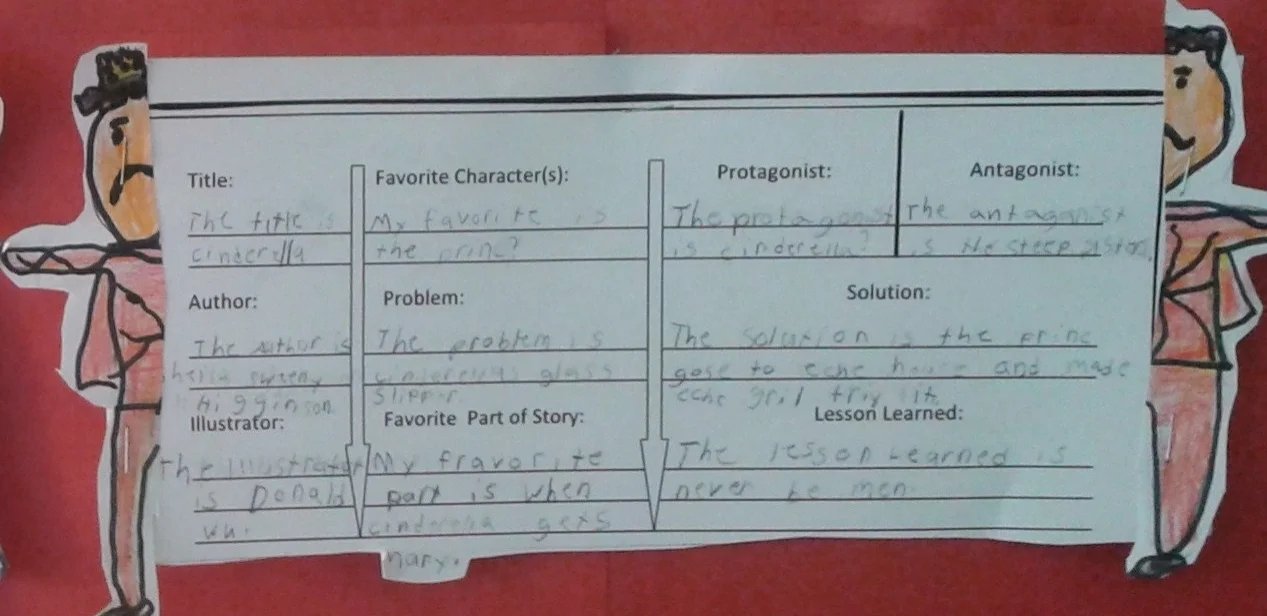 Title:
The title is
cinderella
Favorite Character(s):
My favorite is
the princ?
Protagonist:
The protagonist
is cinderella?
Antagonist:
The antaganist
is the steep
Author:
The author is
Higginson
Problem:
The problem is
glass
Slipper.
Solution:
The Solution is the princ
gose to eche house and made
eche gril try it
Illustrator:
The Illustrator
is Donald
wu.
Favorite Part of Story:
My fravorite
part is when
cinderella gets
mary.
Lesson Learned:
The lesson Learned is
never be men.